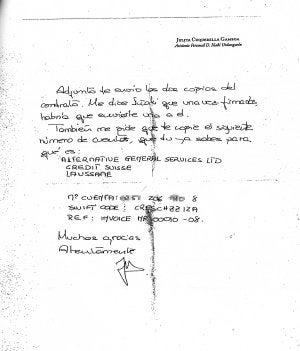 JULITA CUQUERELLA GAMBOA
Asistente Personal D. Iñaki Urdangarin
Adjunto te envio las dos copias del
contrato. Me dice Iñaki que una vez firmado,
habría que enviarle una a el.
También me pide que te copie el siguiente
número de cuenta, que tu ya sabes para
qué es:
ALTERNATIVE GENERAL SERVICES LTD
CREDIT SUISSE
LAUSSANE
Nº CUENTA: 0251
SWIFT CODE: CRESCHZZ12A
REF: INVOICE Nº 00010-08.
Muchas gracias
Atentamente